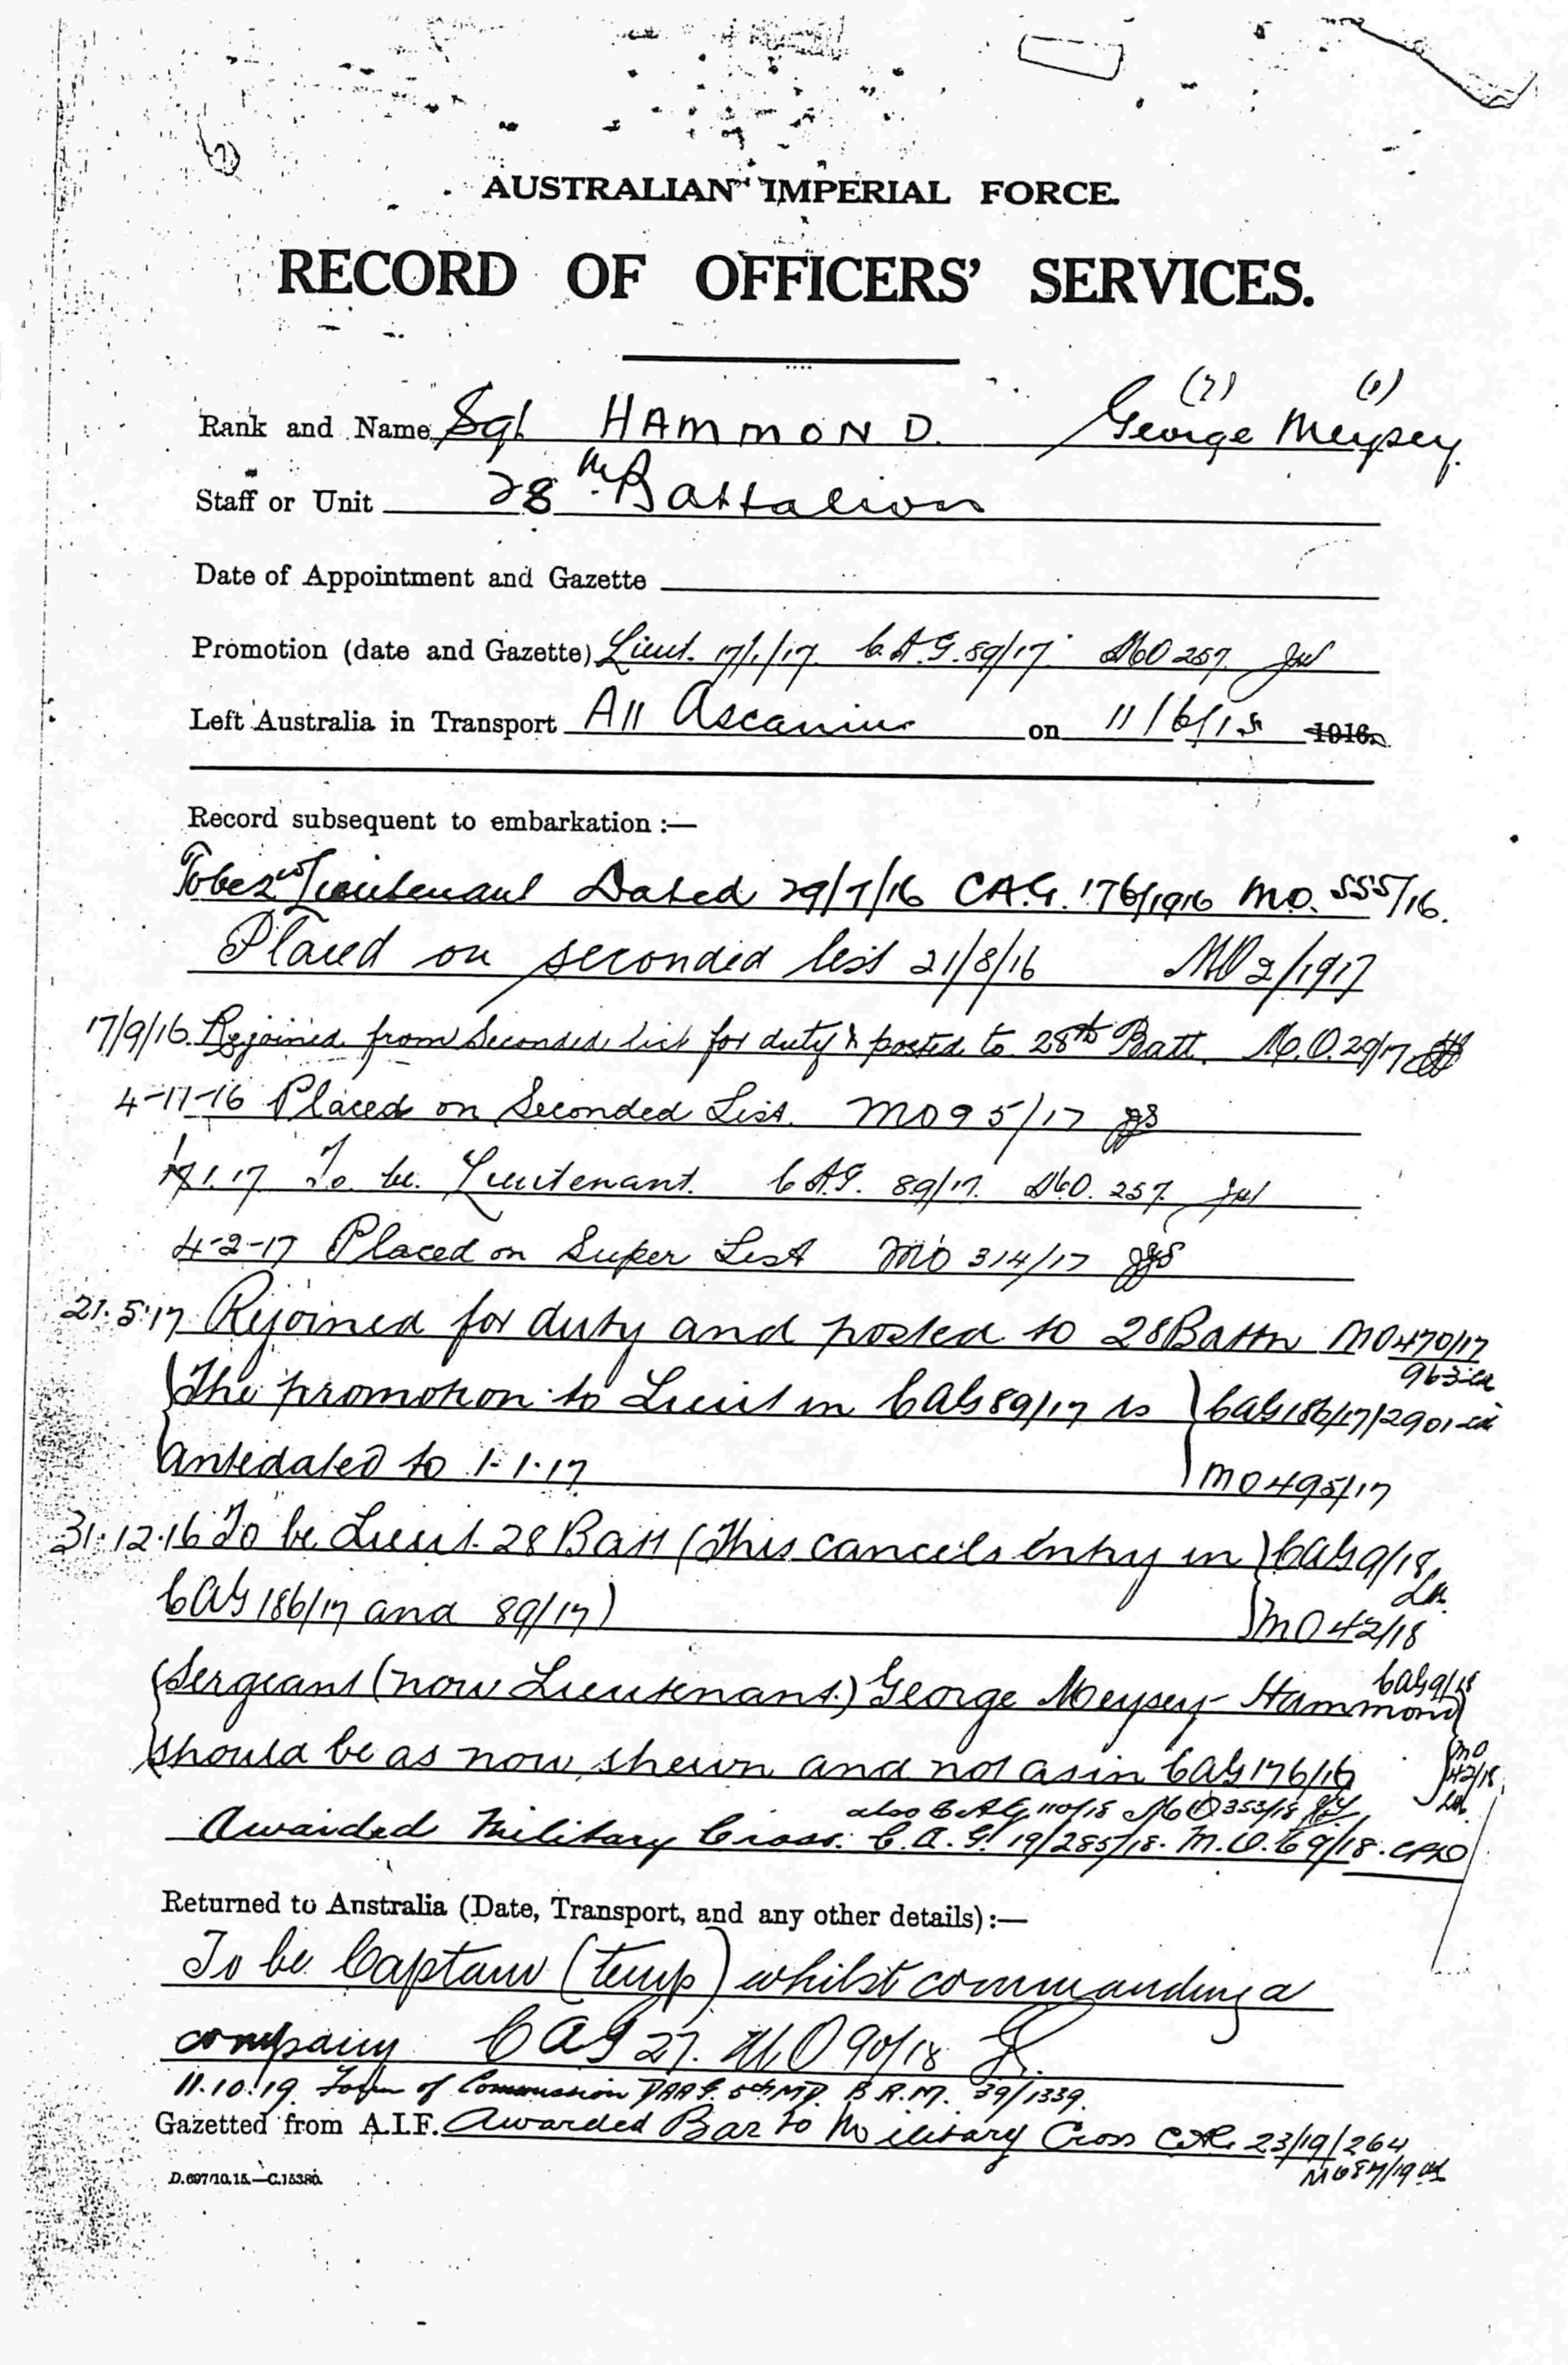 AUSTRALIAN IMPERIAL FORCE.
RECORD OF OFFICERS' SERVICES.
(2) (1)
Rank and Name Sgt HAMMOND. George Meysey.
Staff or Unit 28th Battalion
Date of Appointment and Gazette
Promotion (date and Gazette) Lieut. 17/1/17. C.A.G. 89/17. MO 257.
Left Australia in Transport A11 Ascanius on 11/6/15 1916.
Record subsequent to embarkation :—
To be 2nd Lieutenant Dated 29/7/16 CA.G. 176/1916 MO. 555/16.
Placed on seconded list 21/8/16 MO 2/1917
17/9/16 Rejoined from Seconded list for duty & posted to 28th Batt. M.O. 29/17
4-11-16 Placed on Seconded List. MO 95/17
17.1.17 To be Lieutenant. C.A.G. 89/17. MO. 257.
4-2-17 Placed on Super List MO 314/17
21.5.17 Rejoined for duty and posted to 28 Battn MO 470/17
963
The promotion to Lieut in CAG 89/17 is CAG 186/17/2901
antedated to 1.1.17 MO 495/17
31.12.16 To be Lieut. 28 Batt (This cancels entry in CAG 9/18
CAG 186/17 and 89/17) MO 42/18
Sergeant (now Lieutenant.) George Meysey-Hammond CAG 9/18
should be as now shewn and not as in CAG 176/16 MO 42/18
also C.A.G. 110/18 MO 353/18
Awarded Military Cross. C.A.G. 19/285/18. M.O. 69/18.
Returned to Australia (Date, Transport, and any other details) :—
To be Captain (temp) whilst commanding a
company CAG 27. MO 90/18
11.10.19. Form of Commission DAAG. 5th MD. B.R.M. 39/1339.
Gazetted from A.I.F. Awarded Bar to Military Cross CAG 23/19/264
MO 87/19
D.697/10.15.—C.15380.